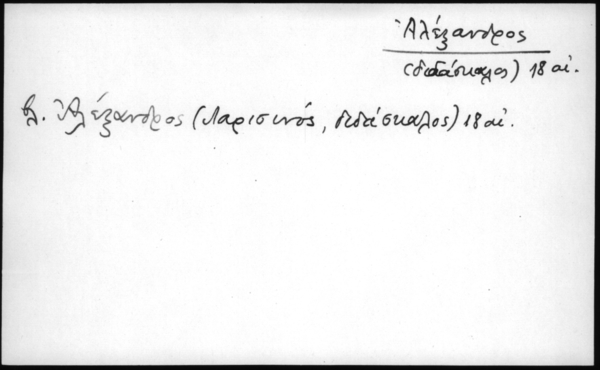 Ἀλέξανδρος
(διδάσκαλος) 18 αἰ.
βλ. Ἀλέξανδρος (Λαρισινός, διδάσκαλος) 18 αἰ.